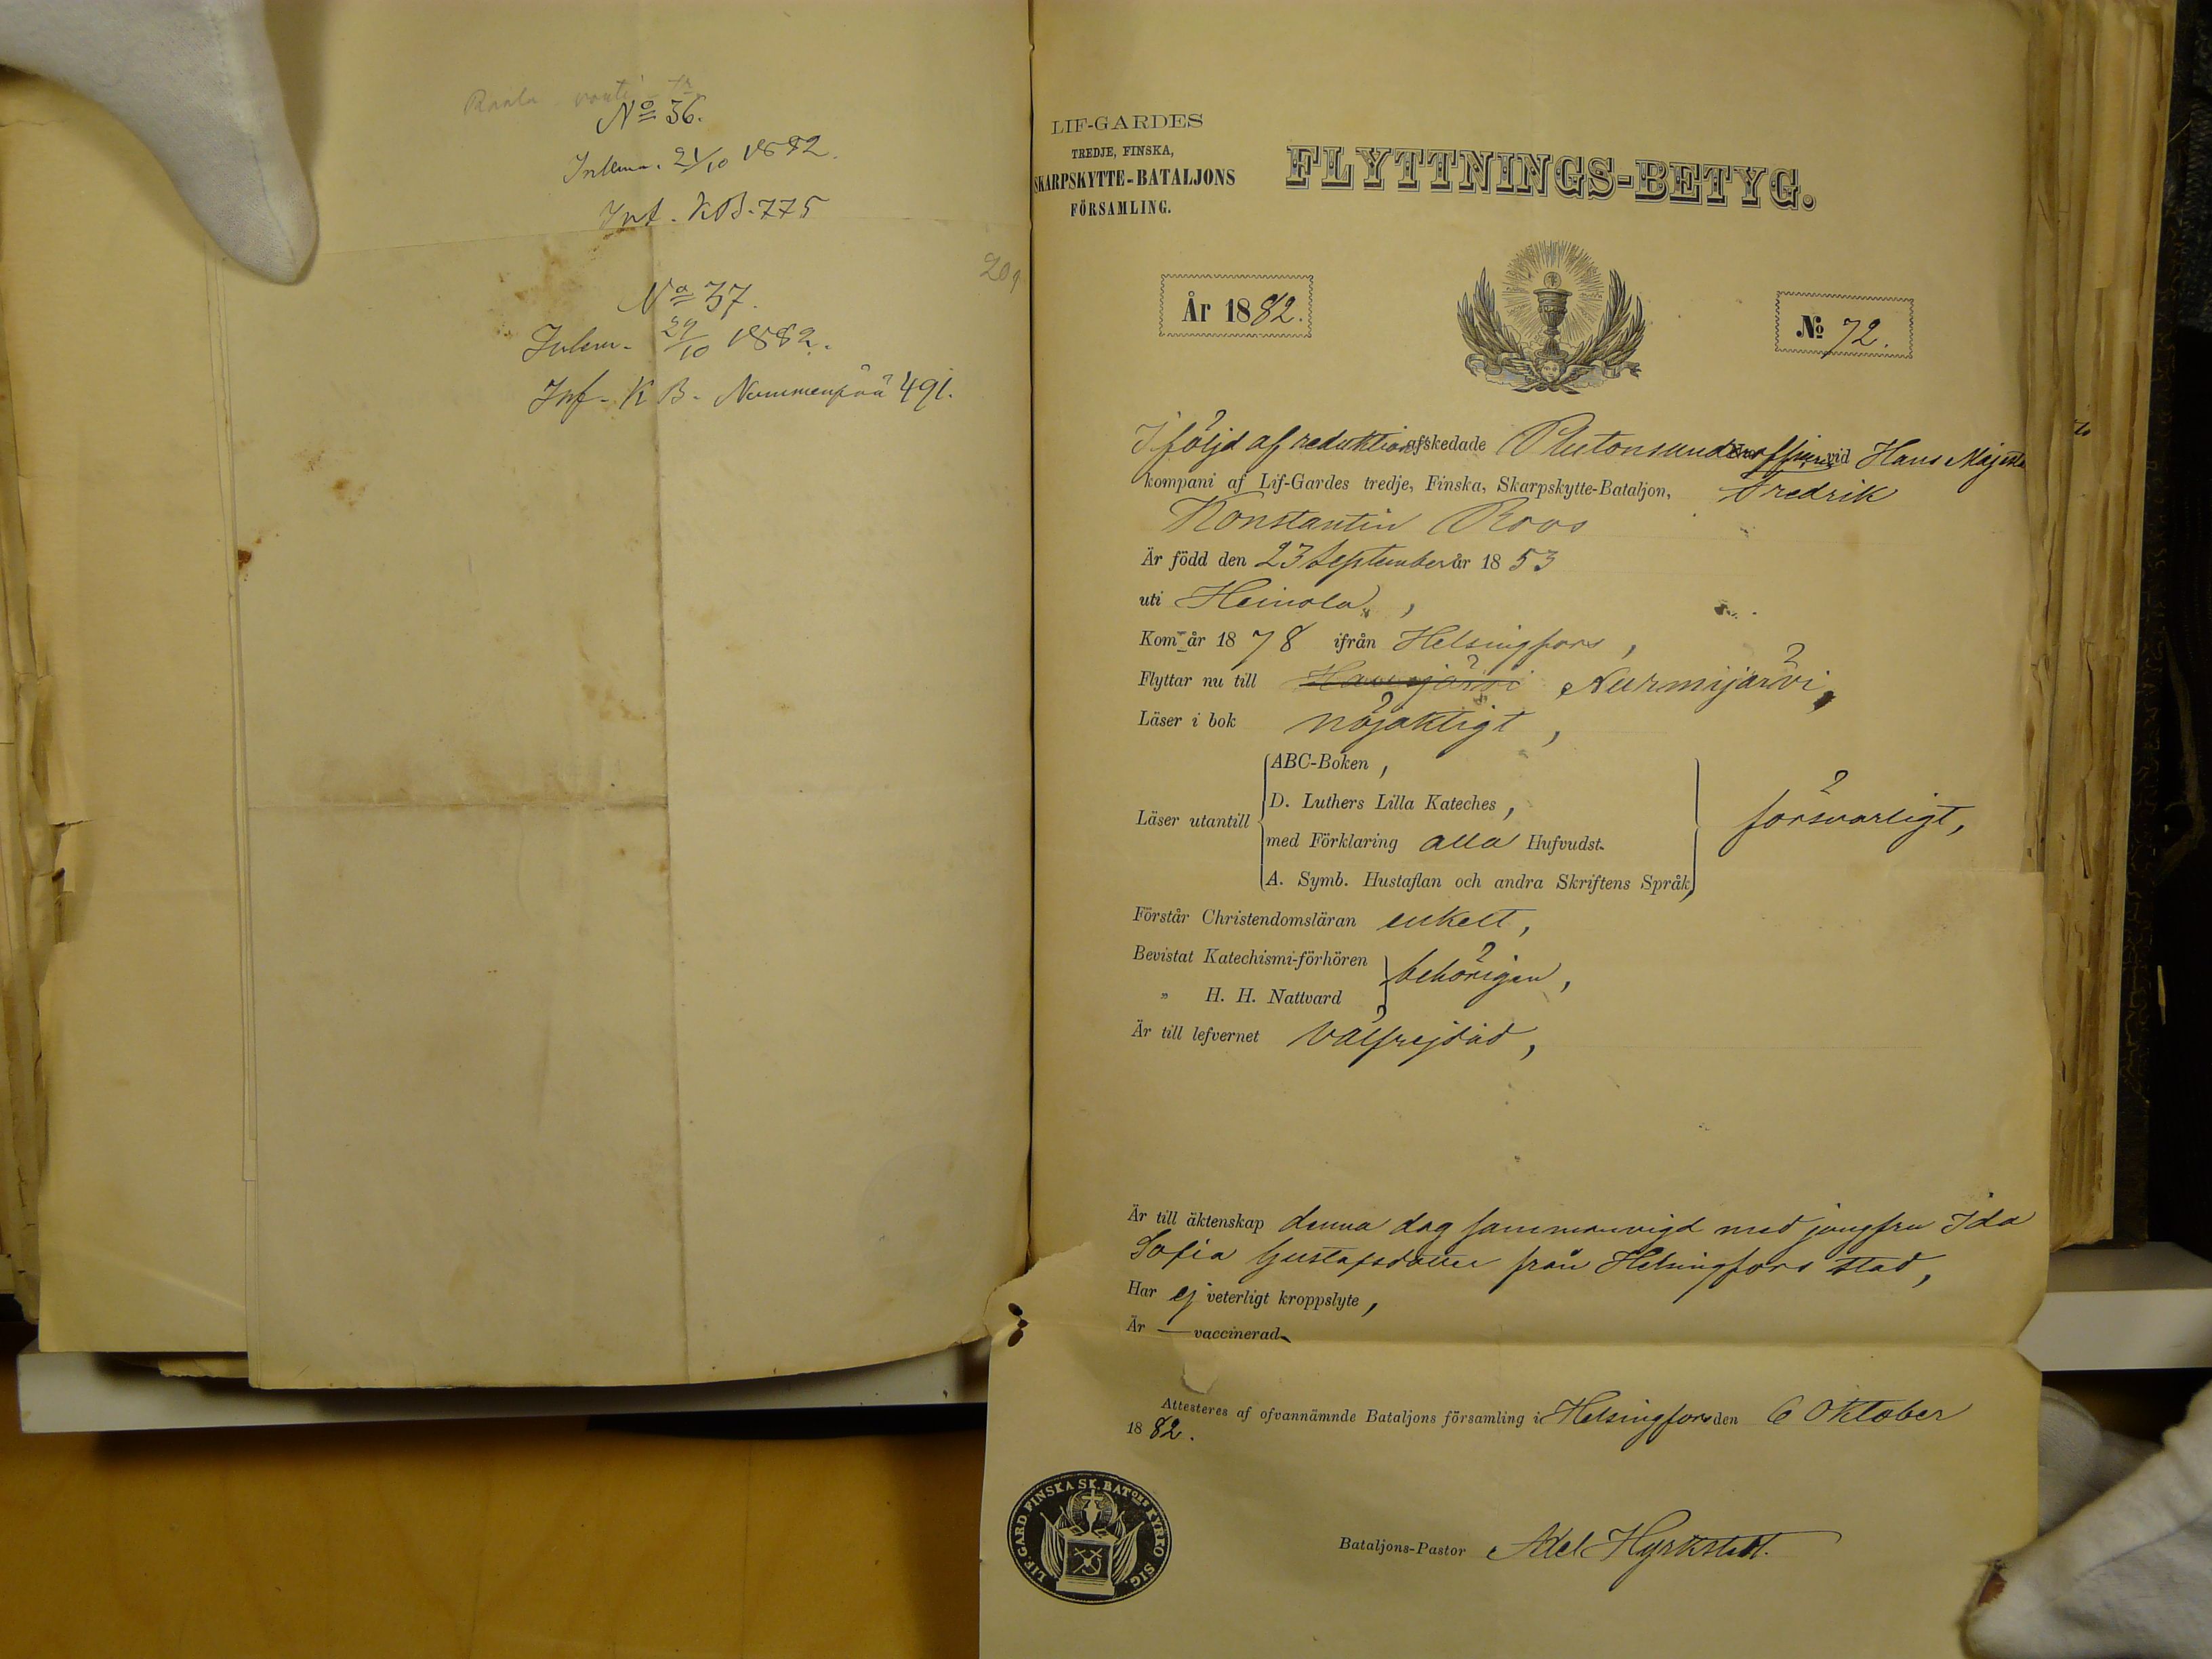 Raala vouti
Nº 36.
Inlemn. 21/10 1882.
Inf. KB. 775
209
Nº 37.
Inlem. 29/10 1882.
Inf. K B. Nummenpää 491.
LIF-GARDES
TREDJE, FINSKA,
SKARPSKYTTE-BATALJONS
FÖRSAMLING.
FLYTTNINGS-BETYG.
År 1882.
Nº 72.
I följd af reduktion afskedade Plutonsunderofficer vid Hans Majestäts
kompani af Lif-Gardes tredje, Finska, Skarpskytte-Bataljon, Fredrik
Konstantin Roos
Är född den 23 September år 1853
uti Heinola,
Kom år 1878 ifrån Helsingfors,
Flyttar nu till Hausjärvi Nurmijärvi,
Läser i bok nöjaktigt,
Läser utantill
ABC-Boken,
D. Luthers Lilla Kateches,
med Förklaring alla Hufvudst.
A. Symb. Hustaflan och andra Skriftens Språk,
försvarligt,
Förstår Christendomsläran enkelt,
Bevistat Katechismi-förhören
„ H. H. Nattvard
behörigen,
Är till lefvernet välfrejdad,
Är till äktenskap denna dag sammanvigd med jungfru Ida
Sofia Gustafsdotter från Helsingfors stad,
Har ej veterligt kroppslyte,
Är — vaccinerad.
Attesteres af ofvannämnde Bataljons församling i Helsingfors den 6 Oktober
1882.
LIF. GARD FINSKA SK. BATONS KYRKO SIG.
Bataljons-Pastor Axel Hyrkstedt.